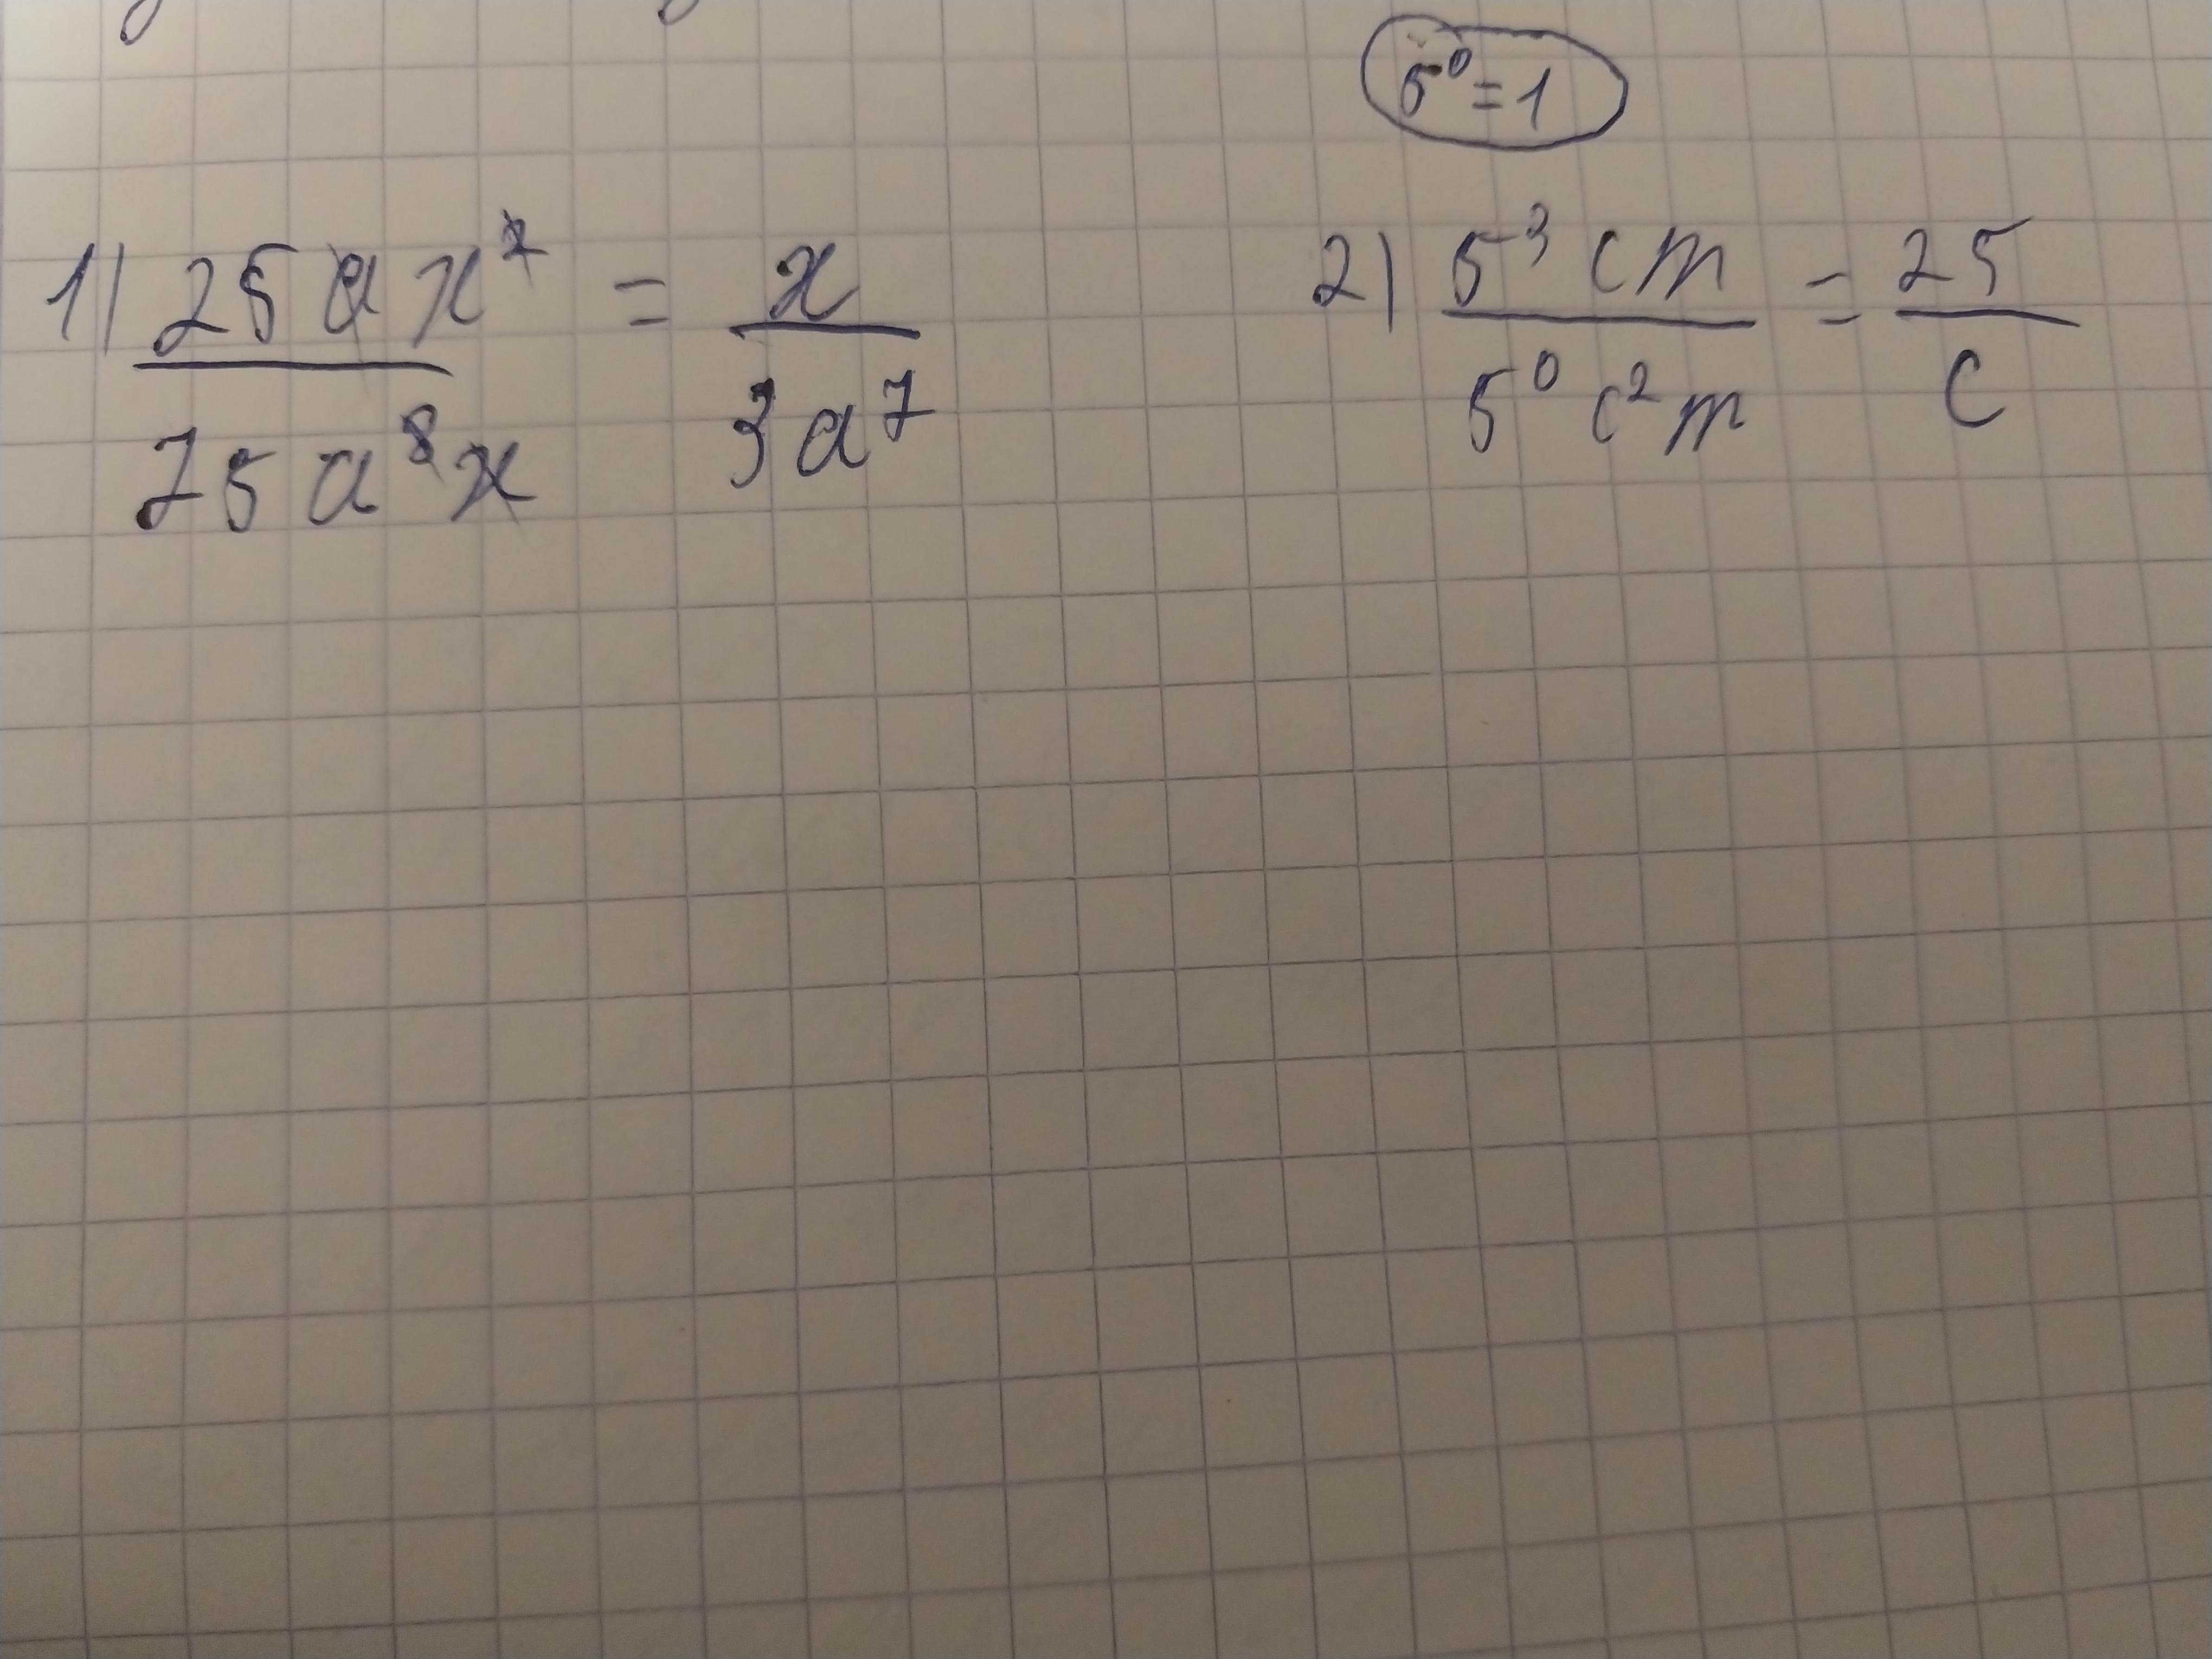 5⁰ = 1
1) 25ax² / 75a⁸x = x / 3a⁷
2) 5³cm / 5⁰c²m = 25 / c